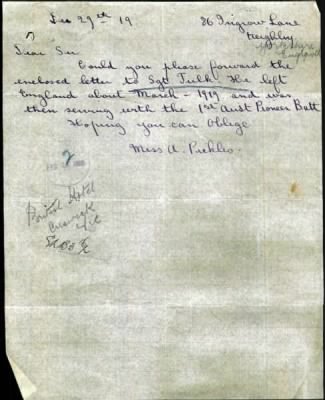 Dec 29th 19
86 Ingrow Lane
Keighley
Yorkshire
England
Dear Sir
Could you please forward the
enclosed letter to Sgt Tulk. He left
England about March - 1919 and was
then serving with the 1st Aust Pioneer Batt
Hoping you can Oblige
Miss A. Pickles.
Hotel